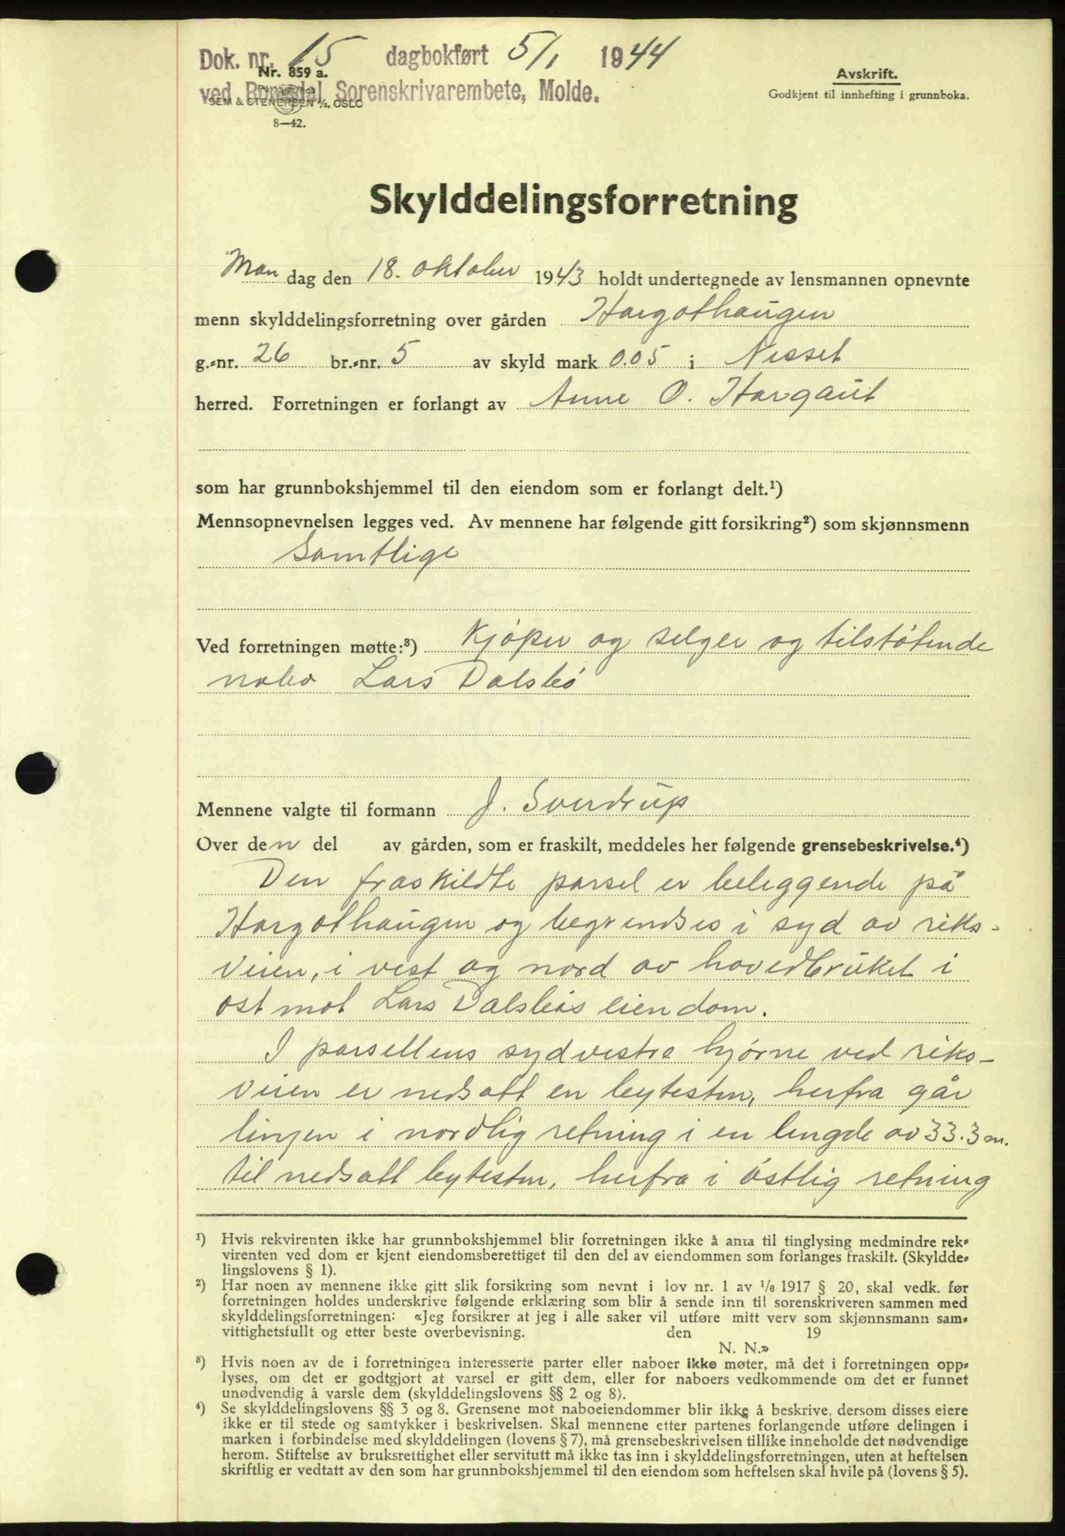 Dok. nr. 15 dagbokført 5/1 1944
Nr. 859 a.
ved Romsdal Sorenskrivarembete, Molde.
SEM & STENERSEN A/S, OSLO
8—42.
Avskrift.
Godkjent til innhefting i grunnboka.
Skylddelingsforretning
Man dag den 18. oktober 1943 holdt undertegnede av lensmannen opnevnte
menn skylddelingsforretning over gården Hargothaugen
g.-nr. 26 br.-nr. 5 av skyld mark 0.05 i Nesset
herred. Forretningen er forlangt av Anne O. Hargaut
som har grunnbokshjemmel til den eiendom som er forlangt delt.¹)
Mennsopnevnelsen legges ved. Av mennene har følgende gitt forsikring²) som skjønnsmenn
Samtlige
Ved forretningen møtte:³) Kjøper og selger og tilstøtende
nabo Lars Dalsbø
Mennene valgte til formann J. Sverdrup
Over den del av gården, som er fraskilt, meddeles her følgende grensebeskrivelse.⁴)
Den fraskildte parsel er beleggende på
Hargothaugen og begrendses i syd av riks-
veien, i vest og nord av hovedbruket i
øst mot Lars Dalsbøs eiendom.
I parsellens sydvestre hjørne ved riks-
veien er nedsatt en bytesten, herfra går
linjen i nordlig retning i en lengde av 33.3 m.
til nedsatt bytesten, herfra i østlig retning
¹) Hvis rekvirenten ikke har grunnbokshjemmel blir forretningen ikke å anta til tinglysing medmindre rek-
virenten ved dom er kjent eiendomsberettiget til den del av eiendommen som forlanges fraskilt. (Skyldde-
lingslovens § 1).
²) Har noen av mennene ikke gitt slik forsikring som nevnt i lov nr. 1 av 1/6 1917 § 20, skal vedk. før
forretningen holdes underskrive følgende erklæring som blir å sende inn til sorenskriveren sammen med
skylddelingsforretningen: «Jeg forsikrer at jeg i alle saker vil utføre mitt verv som skjønnsmann sam-
vittighetsfullt og etter beste overbevisning. den 19
N. N.»
³) Hvis noen av de i forretningen interesserte parter eller naboer ikke møter, må det i forretningen opp-
lyses, om det er godtgjort at varsel er gitt dem, eller for naboers vedkommende om det er funnet
unødvendig å varsle dem (skylddelingslovens §§ 2 og 8).
⁴) Se skylddelingslovens §§ 3 og 8. Grensene mot naboeiendommer blir ikke å beskrive, dersom disses eiere
ikke er til stede og samtykker i beskrivelsen. Skal mennene etter partenes forlangende utføre delingen i
marken i forbindelse med skylddelingen (lovens § 7), må grensebeskrivelsen tillike inneholde det nødvendige
herom. Stiftelse av bruksrettighet eller servitutt må ikke tas inn i skylddelingsforretningen, uten at heftelsen
skriftlig er vedtatt av den som har grunnbokshjemmel til den eiendom som heftelsen skal hvile på (lovens § 5).